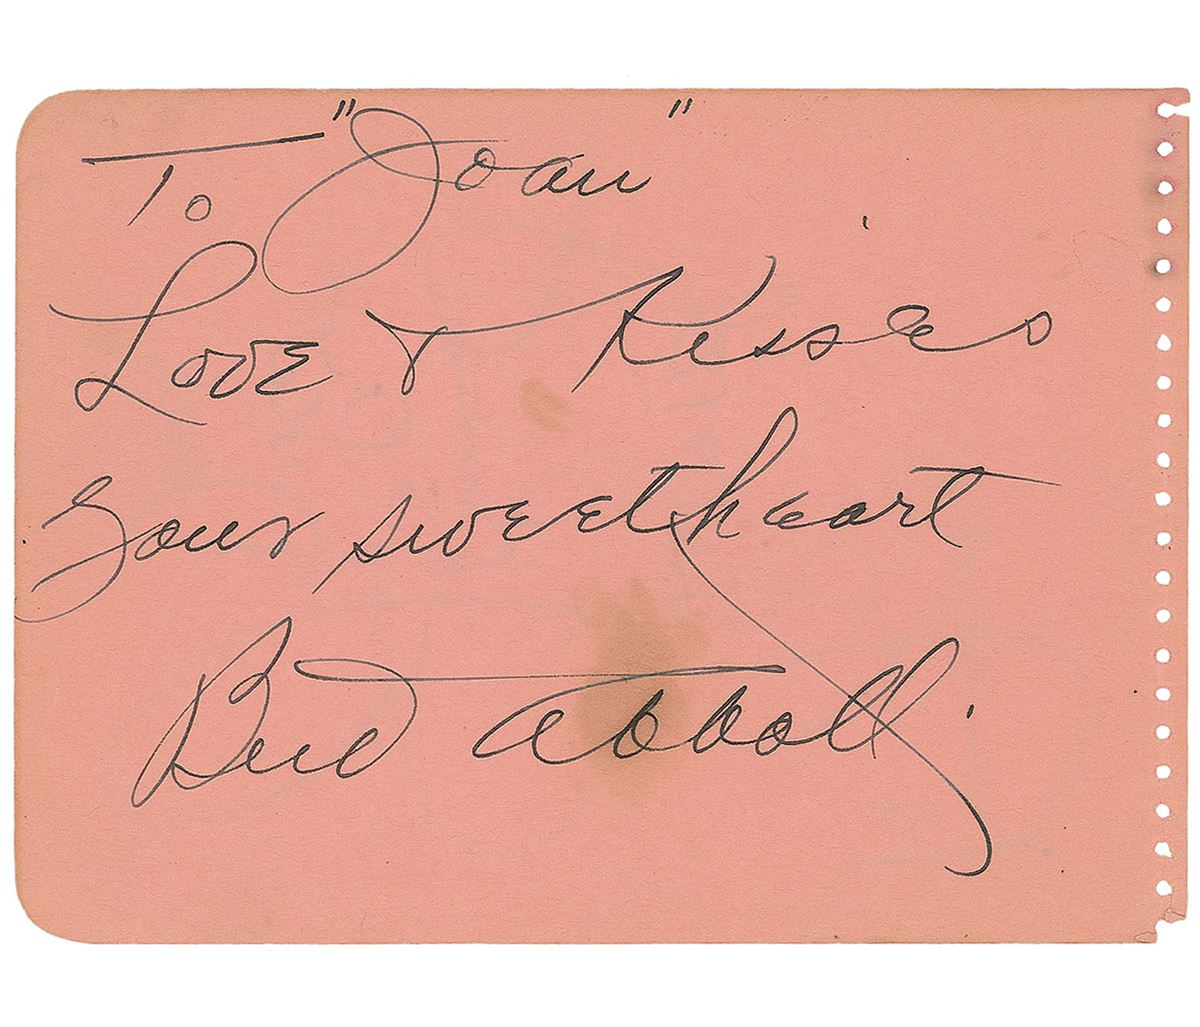 To "Joan"
Love & Kisses
your sweetheart
Bud Abbott